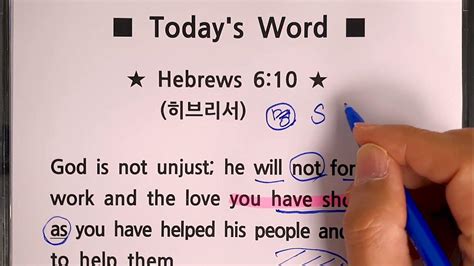 ■ Today's Word ■
★ Hebrews 6:10 ★
(히브리서) S
God is not unjust; he will not
work and the love you have
as you have helped his people
to help them